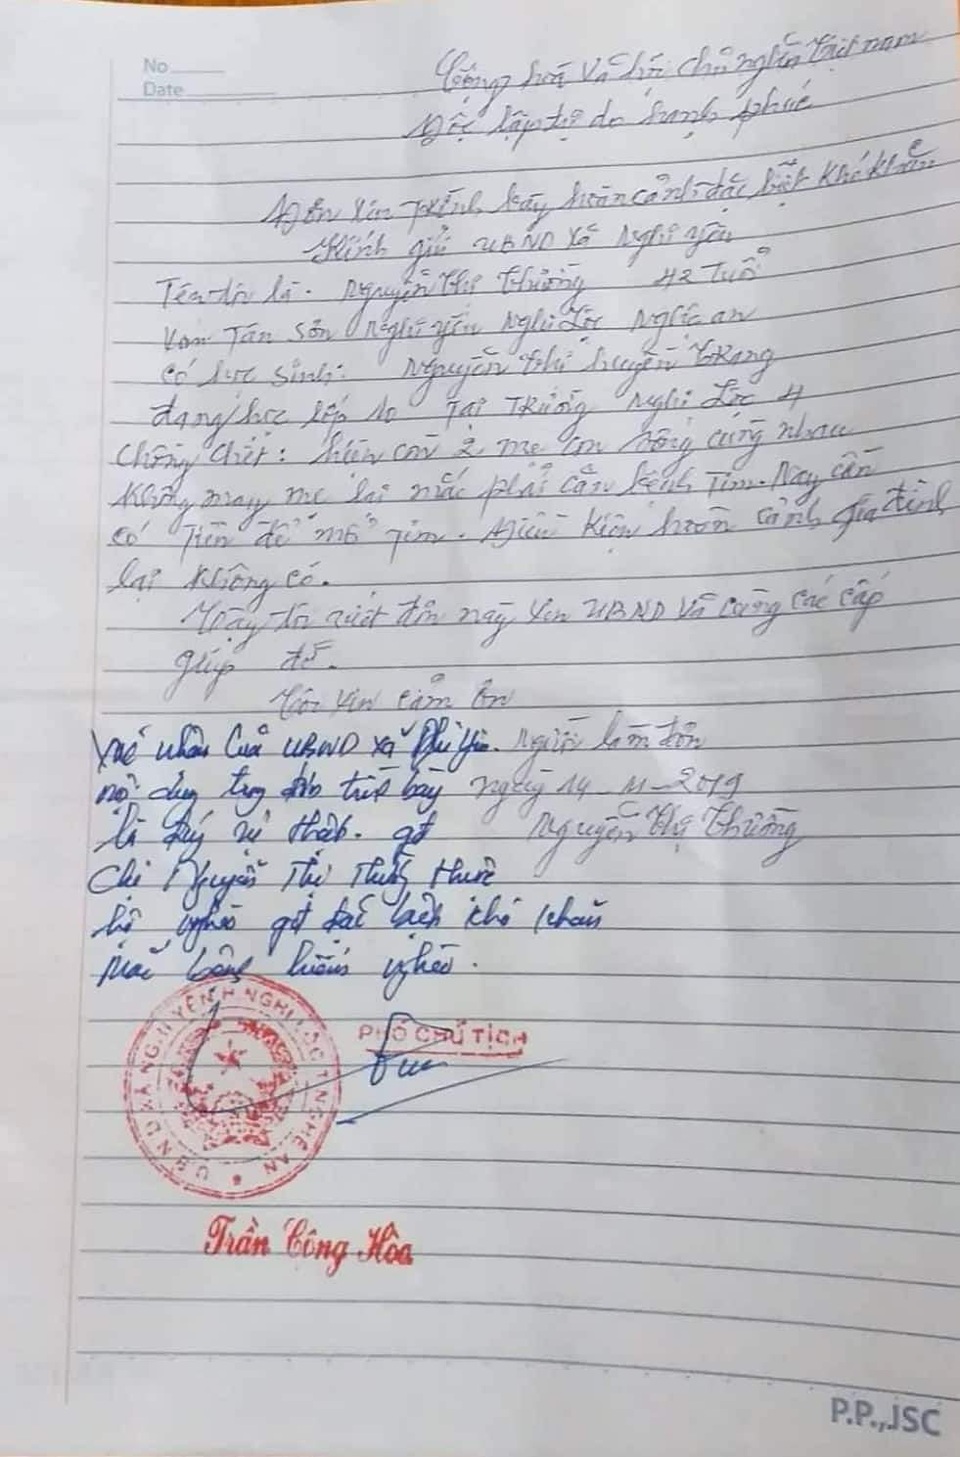 No
Date
Cộng hoà xã hội chủ nghĩa Việt nam
Độc lập tự do hạnh phúc
Đơn xin trình bày hoàn cảnh đặc biệt khó khăn
Kính gửi UBND xã Nghi yên
Tên tôi là. Nguyễn thị Thường 42 Tuổi
Xóm Tân Sơn Nghi yên Nghi Lộc Nghệ an
Có học sinh: Nguyễn thị huyền Trang
đang học lớp 10 Tại Trường Nghi Lộc 4
Chồng chết: hiện còn 2 mẹ con sống cùng nhau
không may mẹ lại mắc phải căn bệnh Tim. Nay cần
có Tiền để mổ Tim. Điều kiện hoàn cảnh gia đình
lại không có.
Vậy tôi viết đơn này xin UBND và cùng các cấp
giúp đỡ.
Tôi xin cảm ơn
Xác nhận Của UBND xã Nghi yên. Người làm đơn
nội dung trong đơn trình bày Ngày 14-11-2019
là đúng sự thật. Nguyễn thị Thường
Chị Nguyễn Thị Thường thuộc
hộ nghèo đặc biệt khó khăn
Mắc bệnh hiểm nghèo.
U.B.N.D XÃ NGHI YÊN H NGHI LỘC T NGHỆ AN
PHÓ CHỦ TỊCH
Trần Công Hòa
P.P.,JSC